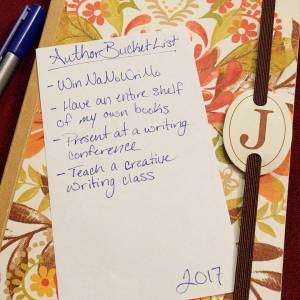 Author Bucket List
- Win NaNoWriMo
- Have an entire shelf
of my own books
- Present at a writing
conference
- Teach a creative
writing class
2017
J